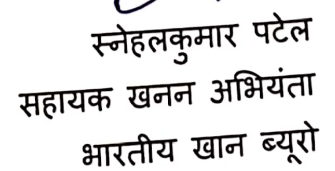 स्नेहलकुमार पटेल
सहायक खनन अभियंता
भारतीय खान ब्यूरो